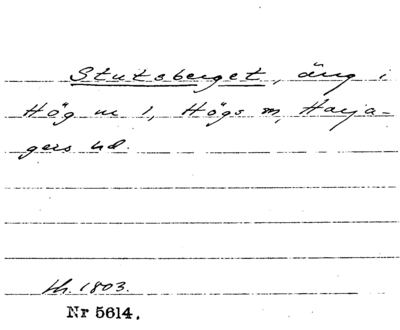 Stutsberget, äng i
Hög nr 1, Högs sn, Harja-
gers hd.
th. 1803.
Nr 5614.